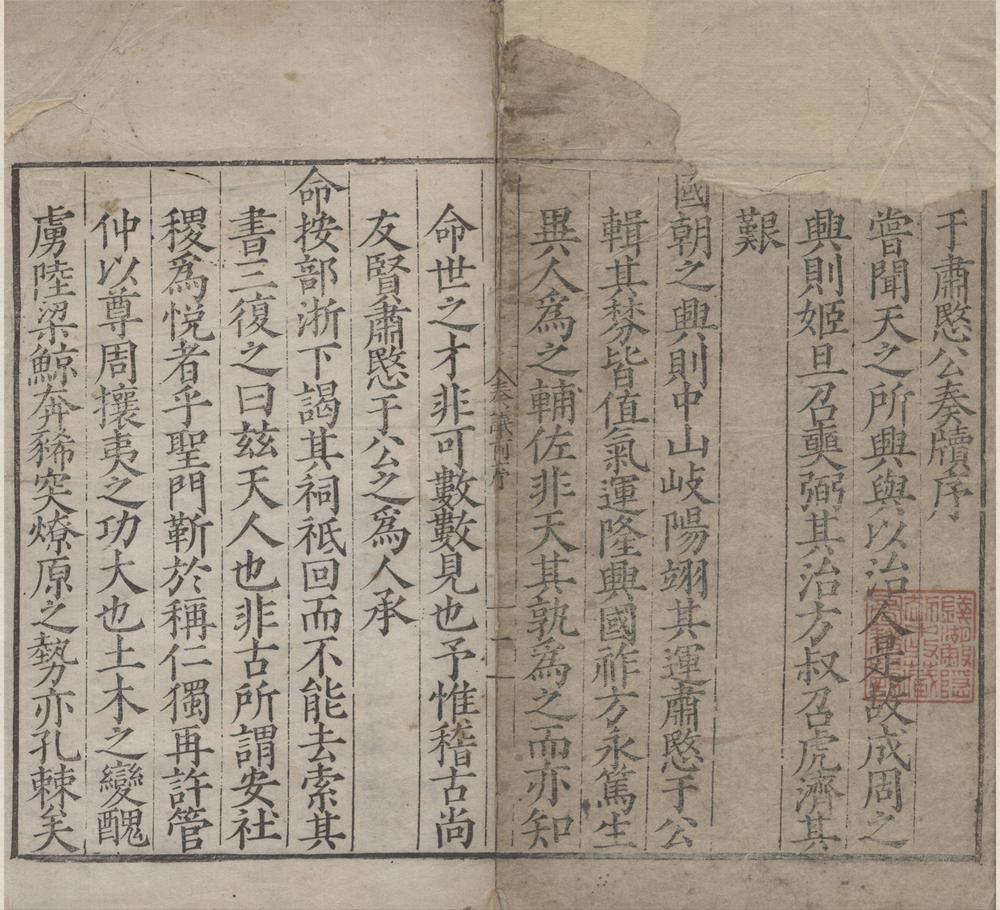 于肅愍公奏牘序
嘗聞天之所興與以治人是故成周之
興則姬旦召奭弼其治方叔召虎濟其
艱
國朝之興則中山岐陽翊其運肅愍于公
輯其棼皆值氣運隆興國祚方永篤生
異人爲之輔佐非天其孰爲之而亦知
命世之才非可數數見也予惟稽古尚
友賢肅愍于公之爲人承
命按部浙下謁其祠祗回而不能去索其
書三復之曰茲天人也非古所謂安社
稷爲悅者乎聖門靳於稱仁獨再許管
仲以尊周攘夷之功大也土木之變醜
虜陸梁鯨奔豨突燎原之勢亦孔棘矣